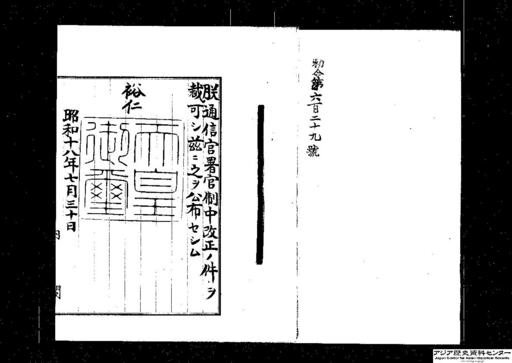 勅令第六百二十九號
朕通信官署官制中改正ノ件ヲ
裁可シ茲ニ之ヲ公布セシム
裕仁
天皇
御璽
昭和十八年七月三十日
内閣
アジア歴史資料センター
Japan Center for Asian Historical Records